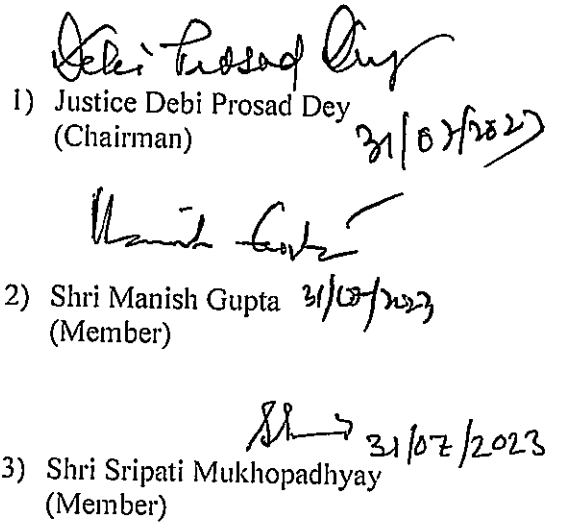 Debi Prosad Dey
1) Justice Debi Prosad Dey
(Chairman)
31/07/2023
Manish Gupta
2) Shri Manish Gupta 31/07/2023
(Member)
31/07/2023
3) Shri Sripati Mukhopadhyay
(Member)